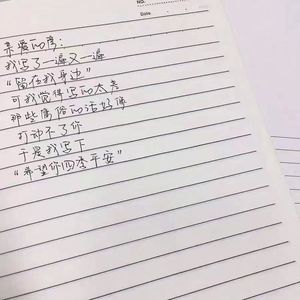 NO.
Date
亲爱的你:
我写了一遍又一遍
“留在我身边”
可我觉得写的太差
那些庸俗的话好像
打动不了你
于是我写下
“希望你四季平安”